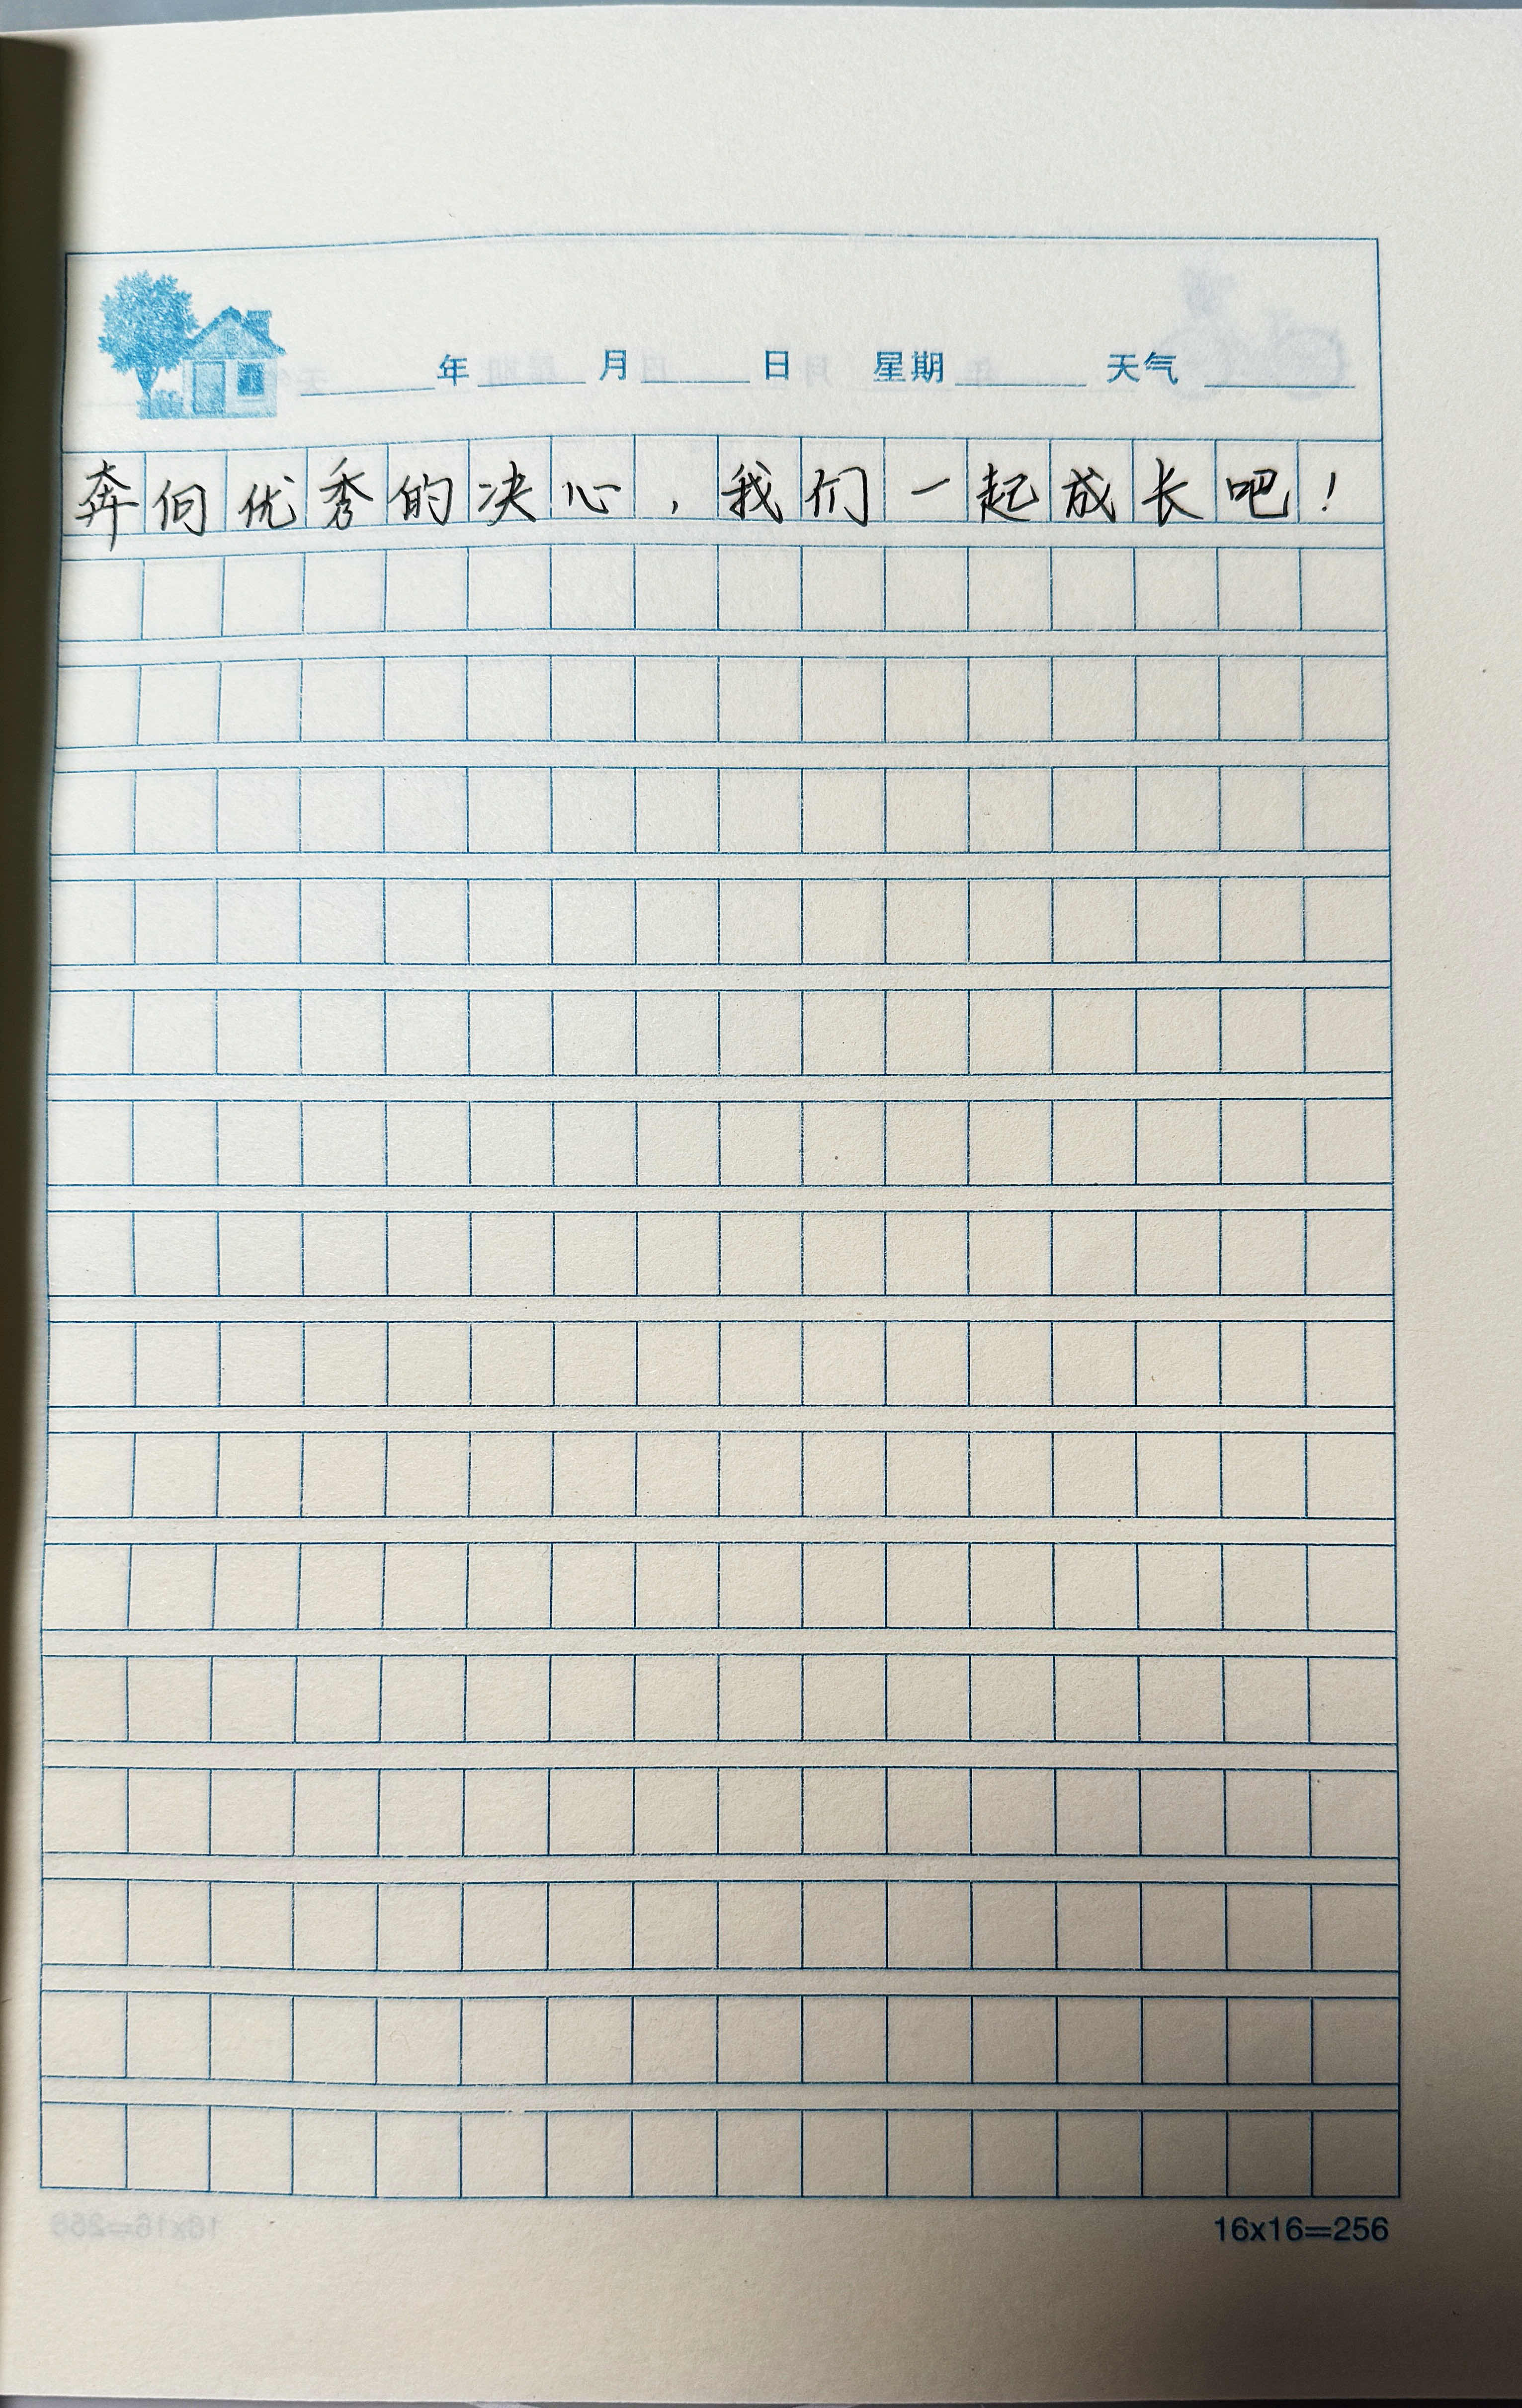 年 月 日 星期 天气
奔向优秀的决心，我们一起成长吧！
16x16=256